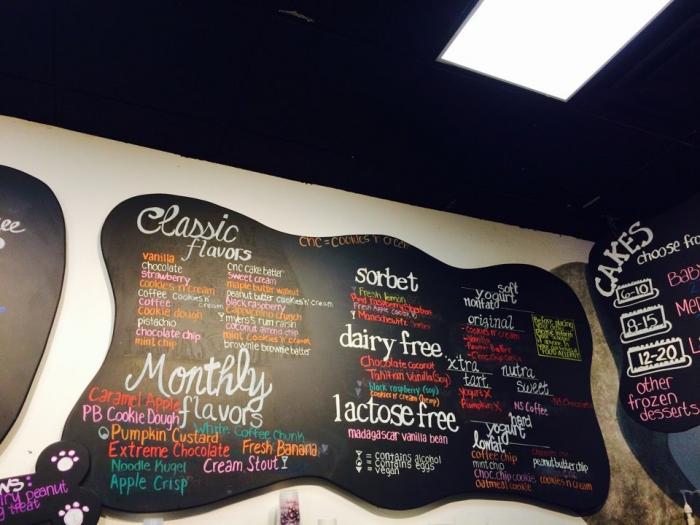 cnc = cookies 'n' cream
Classic
flavors
vanilla
chocolate
strawberry
cookies n' cream
coffee cookies n' cream
coffee
cookie dough
pistachio
chocolate chip
mint chip
cnc cake batter
sweet cream
maple butter walnut
peanut butter cookies n' cream
black raspberry
cappuccino crunch
myers's rum raisin
coconut almond chip
mint cookies n' cream
brownie brownie batter
Monthly
flavors
Caramel Apple
PB Cookie Dough
White Coffee Chunk
Pumpkin Custard
Extreme Chocolate
Fresh Banana
Noodle Kugel
Cream Stout
Apple Crisp
sorbet
Fresh lemon
Red raspberry
Fresh Apple
Manischewitz
dairy free
Chocolate Coconut
Tahitian Vanilla (soy)
black raspberry (soy)
cookies n' cream (hemp)
lactose free
madagascar vanilla bean
= contains alcohol
= contains eggs
vegan
soft
yogurt
nonfat
original
xtra
tart
nutra
sweet
NS Coffee
hard
yogurt
lowfat
coffee chip
mint chip
choc. chip cookie
oatmeal cookie
peanut butter chip
cookies n' cream
FOOD ALLERGY
CAKES
choose fro
6-10
8-15
12-20
other
frozen
desserts
ry peanut
treat